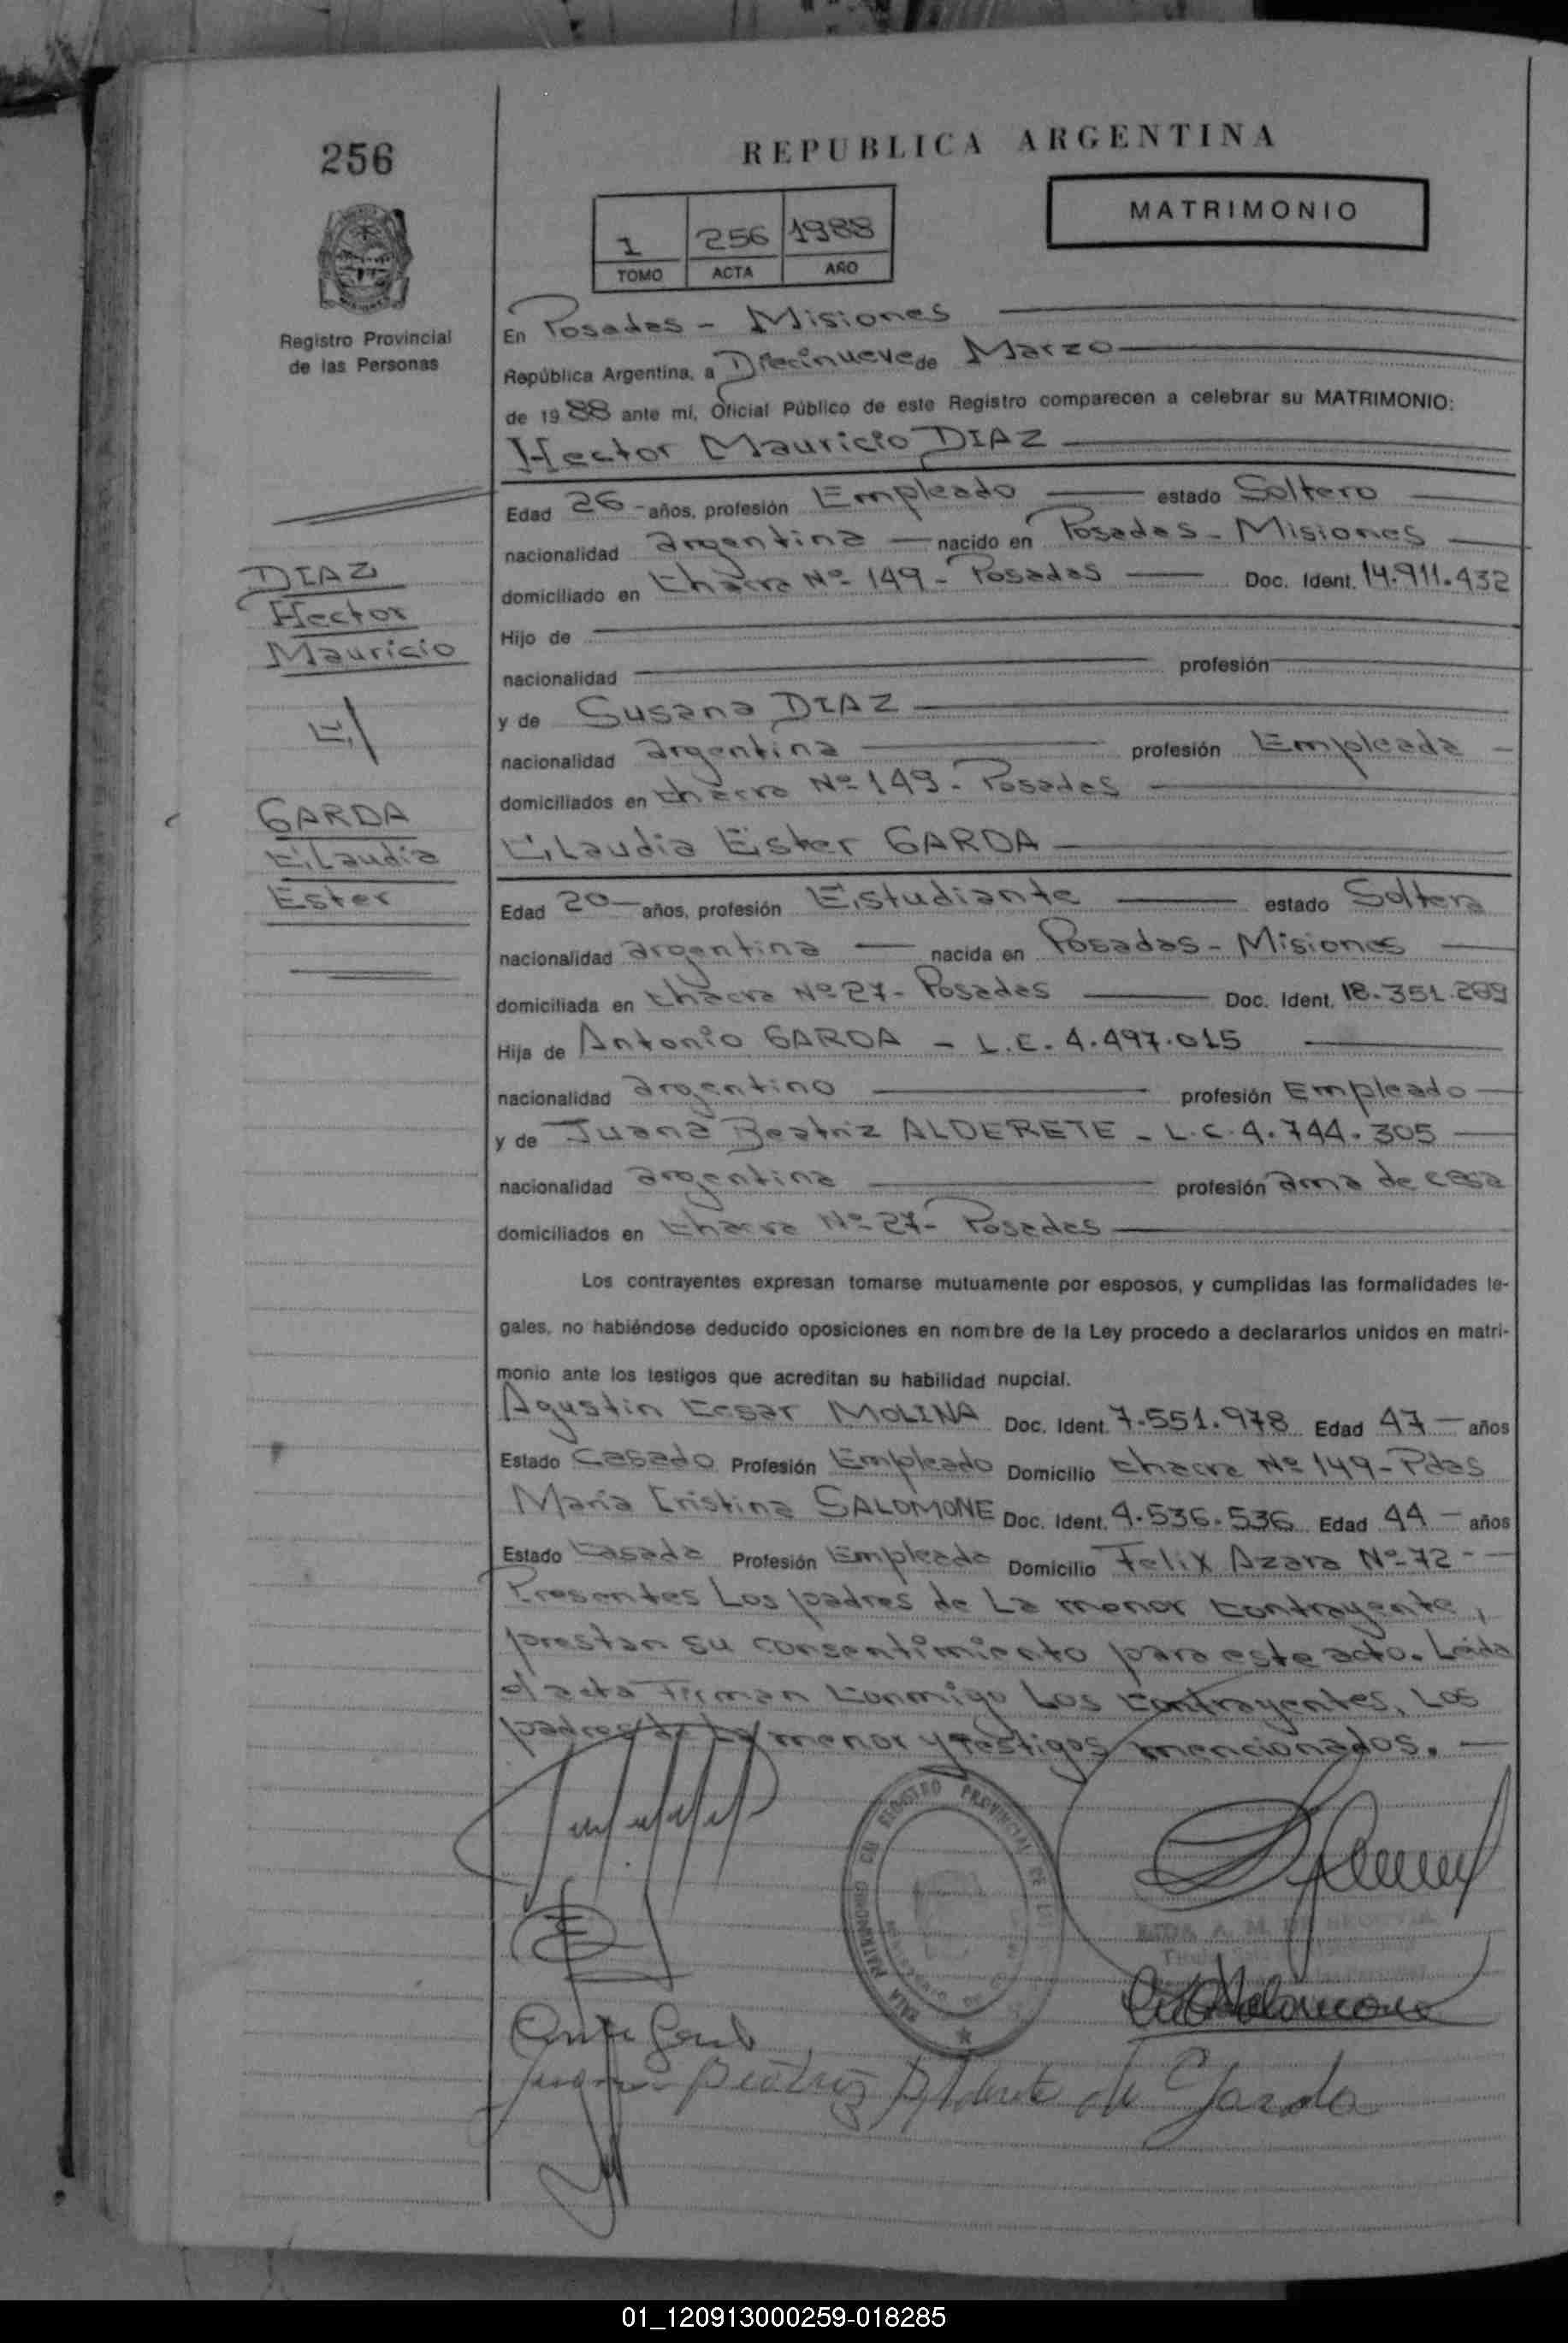 256
REPUBLICA ARGENTINA
MATRIMONIO
1 256 1988
TOMO ACTA AÑO
Registro Provincial
de las Personas
En Posadas - Misiones
República Argentina, a Diecinueve de Marzo
de 1988 ante mí, Oficial Público de este Registro comparecen a celebrar su MATRIMONIO:
Hector Mauricio DIAZ
Edad 26 - años, profesión Empleado estado Soltero
nacionalidad argentina nacido en Posadas - Misiones
domiciliado en Chacra Nº 149 - Posadas Doc. Ident. 14.911.432
Hijo de
nacionalidad profesión
y de Susana DIAZ
nacionalidad argentina profesión Empleada
domiciliados en Chacra Nº 149 - Posadas
DIAZ
Hector
Mauricio
C/
GARDA
Claudia
Ester
Claudia Ester GARDA
Edad 20 años, profesión Estudiante estado Soltera
nacionalidad argentina nacida en Posadas - Misiones
domiciliada en Chacra Nº 27 - Posadas Doc. Ident. 18.351.289
Hija de Antonio GARDA - L.E. 4.497.015
nacionalidad argentino profesión Empleado
y de Juana Beatriz ALDERETE - L.C. 4.744.305
nacionalidad argentina profesión ama de casa
domiciliados en Chacra Nº 27 - Posadas
Los contrayentes expresan tomarse mutuamente por esposos, y cumplidas las formalidades le-
gales, no habiéndose deducido oposiciones en nombre de la Ley procedo a declararlos unidos en matri-
monio ante los testigos que acreditan su habilidad nupcial.
Agustin Cesar MOLINA Doc. Ident. 7.551.978 Edad 47 - años
Estado Casado Profesión Empleado Domicilio Chacra Nº 149 - Pdas
Maria Cristina SALOMONE Doc. Ident. 4.536.536 Edad 44 - años
Estado Casada Profesión Empleada Domicilio Felix Azara Nº 72 -
Presentes Los padres de La menor contrayente,
prestan su consentimiento para este acto. Leida
el acta Firman conmigo Los contrayentes, Los
padres de La menor y testigos mencionados.
REGISTRO PROVINCIAL DE
Juana Beatriz Alderete de Garda
01_120913000259-018285